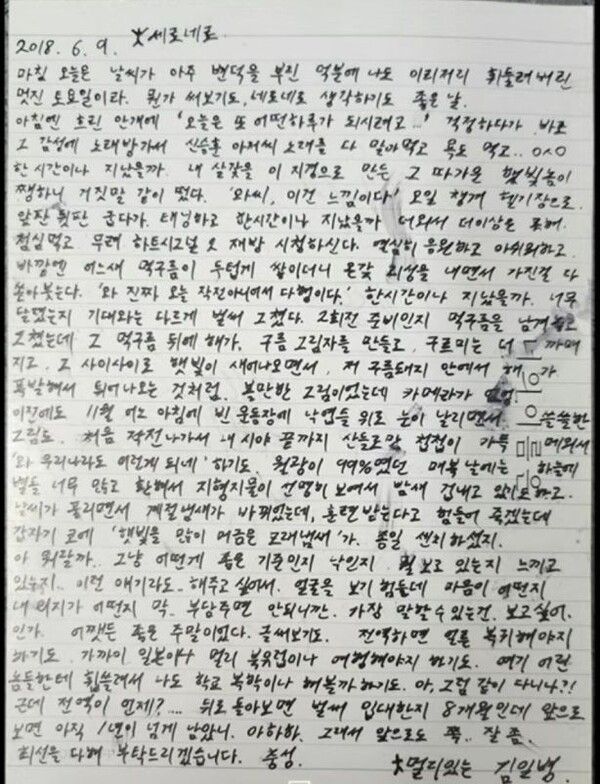 2018. 6. 9. ★세로네로.
마침 오늘은 날씨가 아주 변덕을 부린 덕분에 나도 이리저리 휘둘려버린
멋진 토요일이라. 뭔가 써보기도, 네로네로 생각하기도 좋은 날.
아침엔 흐린 안개에 '오늘은 또 어떤하루가 되시려고...' 걱정하다가 바로
그 감성에 노래방가서 신승훈 아저씨 노래를 다 잡아먹고 욕도 먹고.. ㅇㅅㅇ
한 시간이나 지났을까. 내 살갗을 이 지경으로 만든 그 따가운 햇빛놈이
쨍하니 거짓말 같이 떴다. '와씨, 이건 느낌이다' 오일 챙겨 헬기장으로.
앞판 뒷판 굽다가. 태닝하고 한시간이나 지났을까 더워서 더이상은 못해.
점심먹고 무려 하트시그널 2 재방 시청하신다. 열심히 응원하고 아쉬워하고.
바깥엔 어느새 먹구름이 두텁게 쌓이더니 온갖 괴성을 내면서 가진걸 다
쏟아붓는다. '와 진짜 오늘 작전아니어서 다행이다.' 한시간이나 지났을까. 너무
단했는지 기대와는 다르게 벌써 그쳤다. 2회전 준비인지 먹구름을 남겨놓고
그쳤는데 그 먹구름 뒤에 해가. 구름 그림자를 만들고, 구르미는 더 까매
지고. 그 사이사이로 햇빛이 새어나오면서, 저 구름돼지 안에서 해가
폭발해서 튀어나오는 것처럼. 볼만한 그림이었는데 카메라가 없어
이전에도 11월 어느 아침에 빈 운동장에 낙엽들 위로 눈이 날리면서 쓸쓸한
그림도. 처음 작전나가서 내 시야 끝까지 산들로만 첩첩이 가득 메워서
'와 우리나라도 이렇게 되네' 하기도. 월광이 99%였던 매복날에는 하늘에
별들 너무 많고 환해서 지형지물이 선명히 보여서 밤새 겁내고 있기도하고.
날씨가 풀리면서 계절냄새가 바뀌었는데, 훈련 받는다고 힘들어 죽겠는데
갑자기 코에 '햇빛을 많이 머금은 모래냄새'가. 종일 센치하셨지.
아 뭐랄까.. 그냥 어떻게 좁은 기준인지 낙인지 보고 있는지 느끼고
있는지.. 이런 얘기라도.. 해주고 싶어서. 얼굴을 보기 힘든데 마음이 어떤지
내 의지가 어떤지 막.. 부담주면 안되니깐. 가장 말할 수 있는건. 보고싶어.
인가. 어쨌든 좋은 주말이었다. 글써보기도. 전역하면 얼른 복귀해야지
하기도. 가까이 일본이나 멀리 북유럽이나 여행해야지 하기도. 여기 어린
놈들한테 휩쓸려서 나도 학교 복학이나 해볼까하기도. 아, 그럼 같이 다니나?!
근데 전역이 언제?.... 뒤로 돌아보면 벌써 입대한지 8개월인데 앞으로
보면 아직 1년이 넘게 남았니. 아하하. 그래서 앞으로도 쭉.. 잘 좀.
최선을 다해 부탁드리겠습니다. 충성.
★멀리있는 김일병.